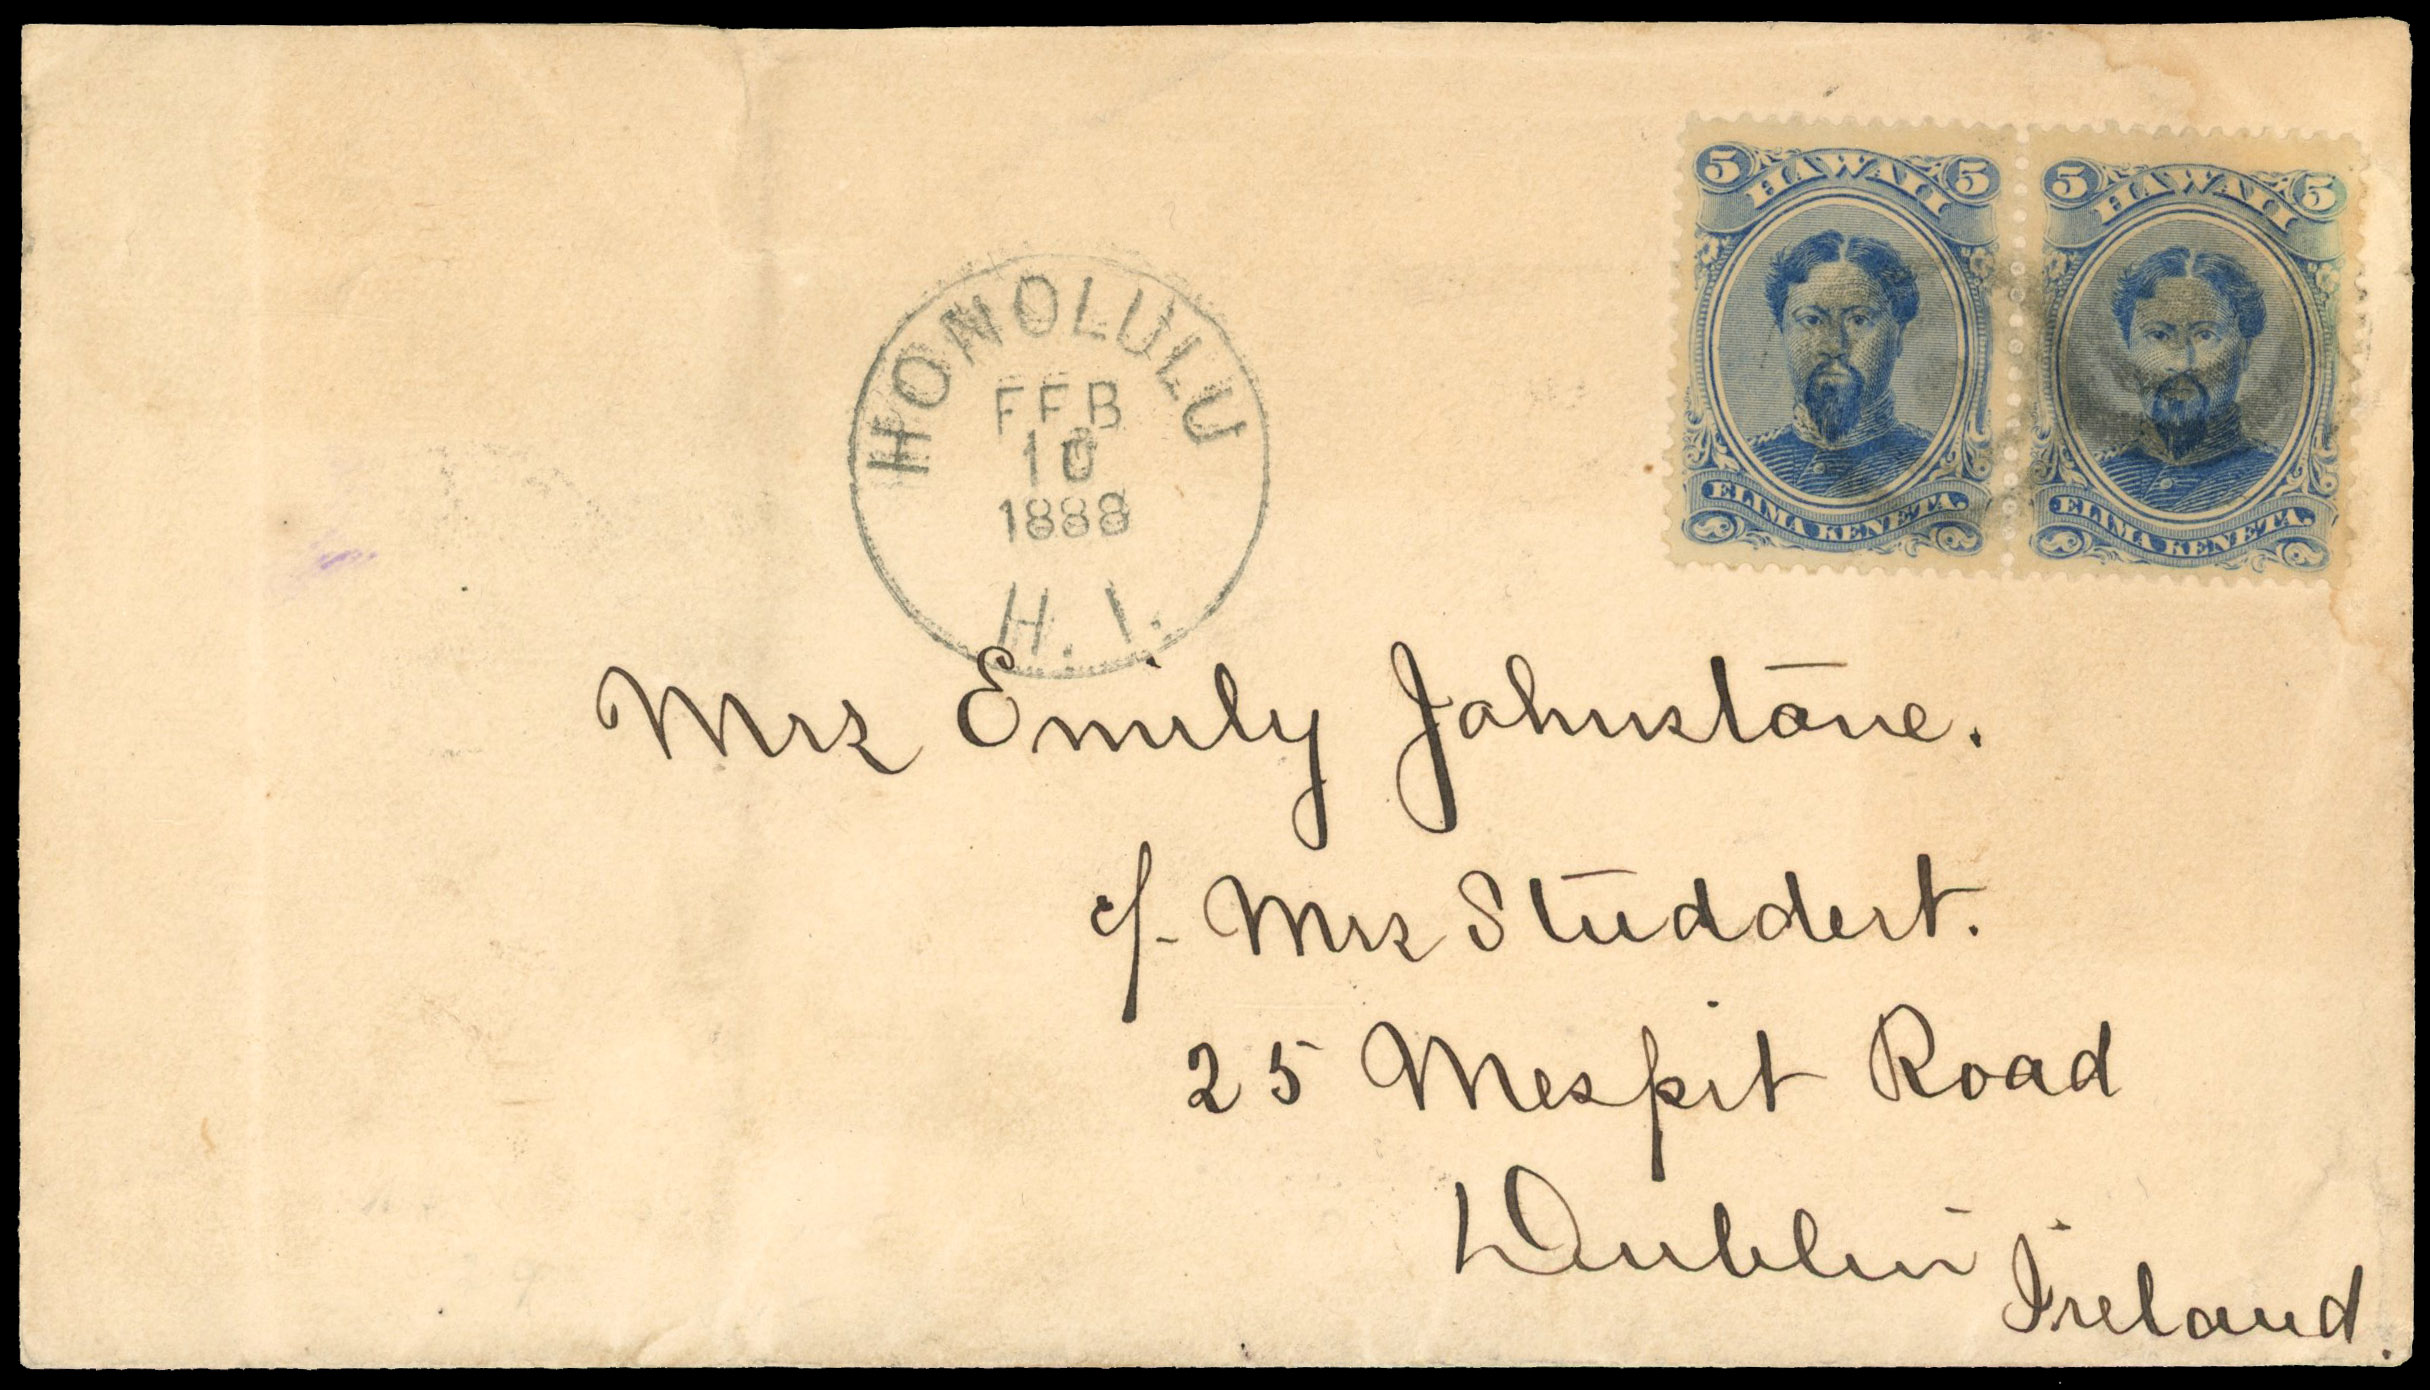 5 HAWAII 5
ELIMA KENETA.
5 HAWAII 5
ELIMA KENETA.
HONOLULU
FEB
1888
H. I.
Mrs Emily Johnstone.
c/- Mrs Studdert.
25 Mespit Road
Dublin
Ireland.